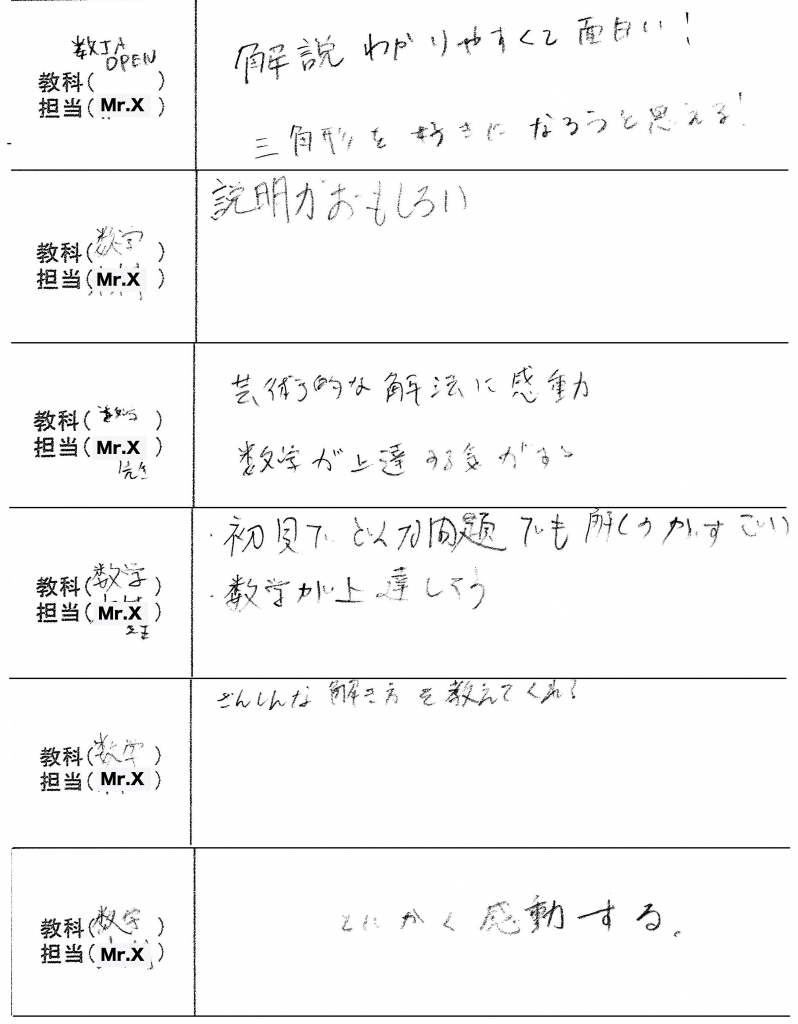 数IA
OPEN
教科( )
担当( Mr.X )
解説 わかりやすくて 面白い！
三角形を 好きに なろうと思える！
教科(数学)
担当( Mr.X )
説明がおもしろい
教科(数学)
担当( Mr.X )
先生
芸術的な解法に感動
数学が上達する気がする
教科(数学)
担当( Mr.X )
・初見で どんな問題でも 解くのがすごい
・数学が上達しそう
教科(数学)
担当( Mr.X )
ざんしんな 解き方を教えてくれる
教科(数学)
担当( Mr.X )
とにかく感動する。